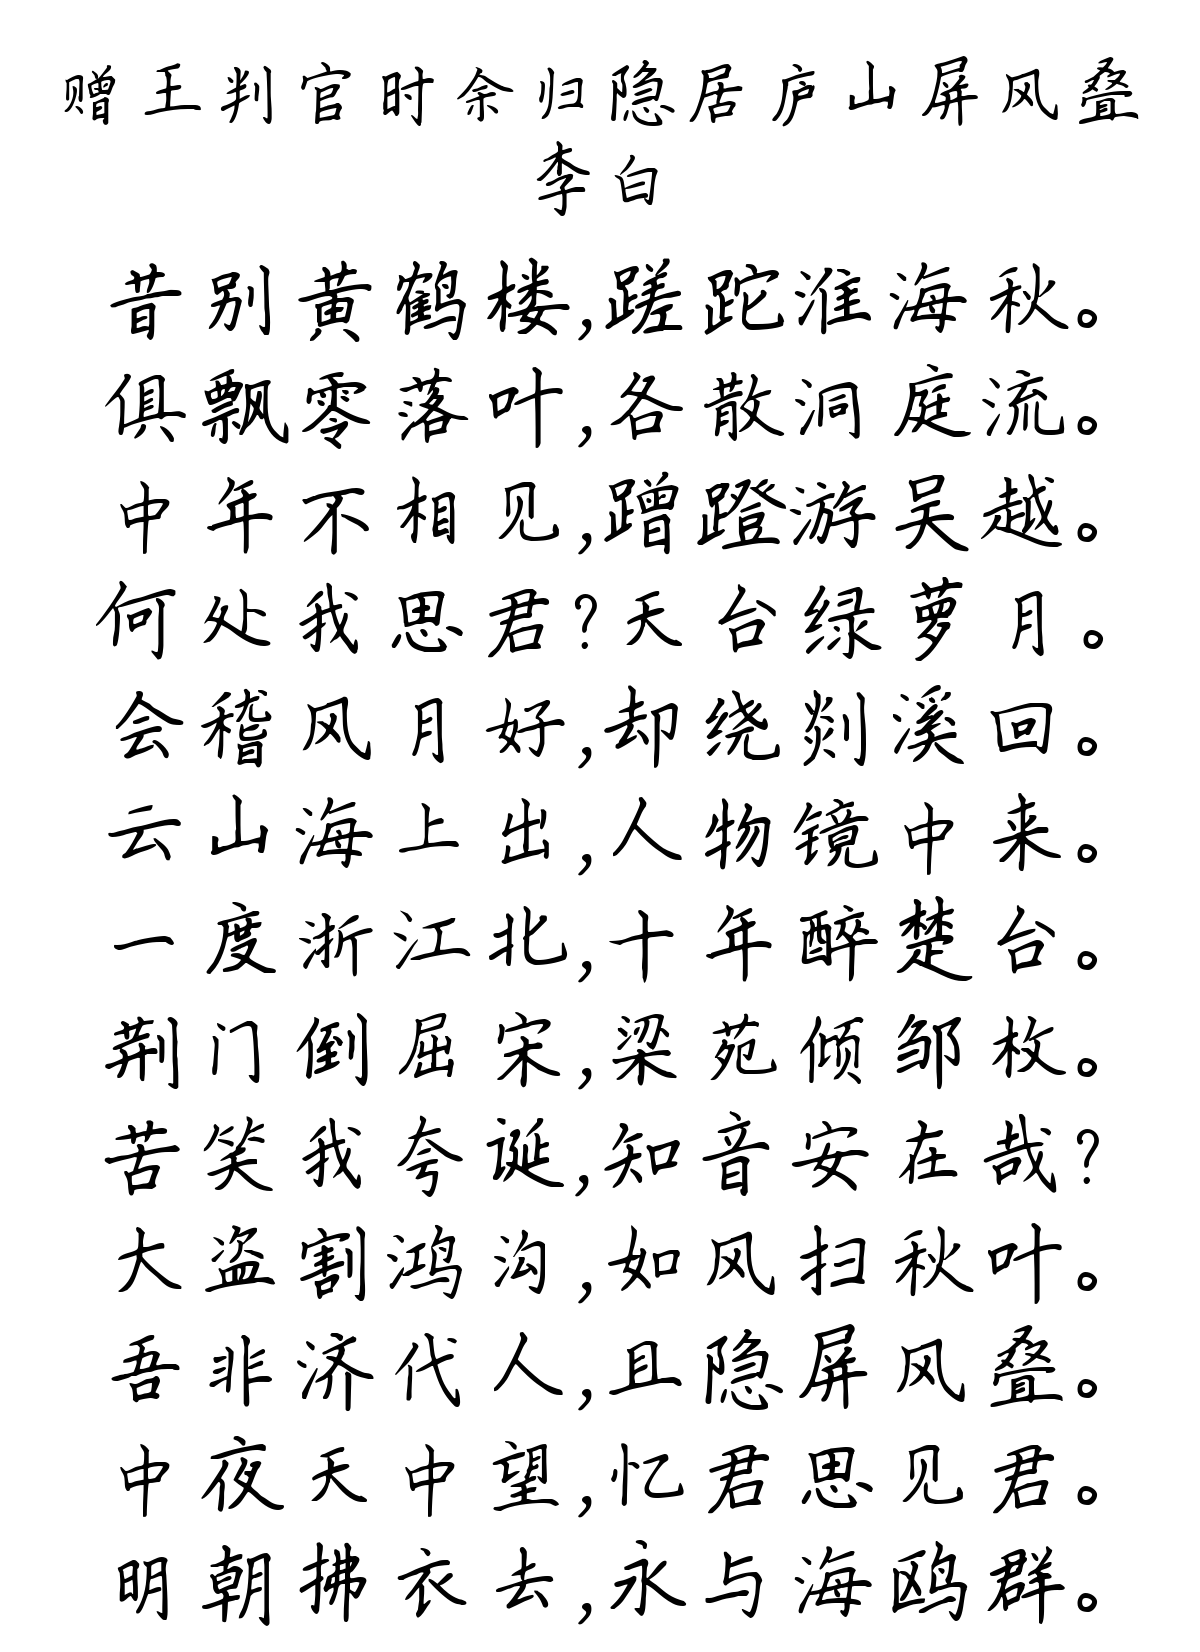 赠王判官时余归隐居庐山屏风叠
李白
昔别黄鹤楼,蹉跎淮海秋。
俱飘零落叶,各散洞庭流。
中年不相见,蹭蹬游吴越。
何处我思君?天台绿萝月。
会稽风月好,却绕剡溪回。
云山海上出,人物镜中来。
一度浙江北,十年醉楚台。
荆门倒屈宋,梁苑倾邹枚。
苦笑我夸诞,知音安在哉?
大盗割鸿沟,如风扫秋叶。
吾非济代人,且隐屏风叠。
中夜天中望,忆君思见君。
明朝拂衣去,永与海鸥群。